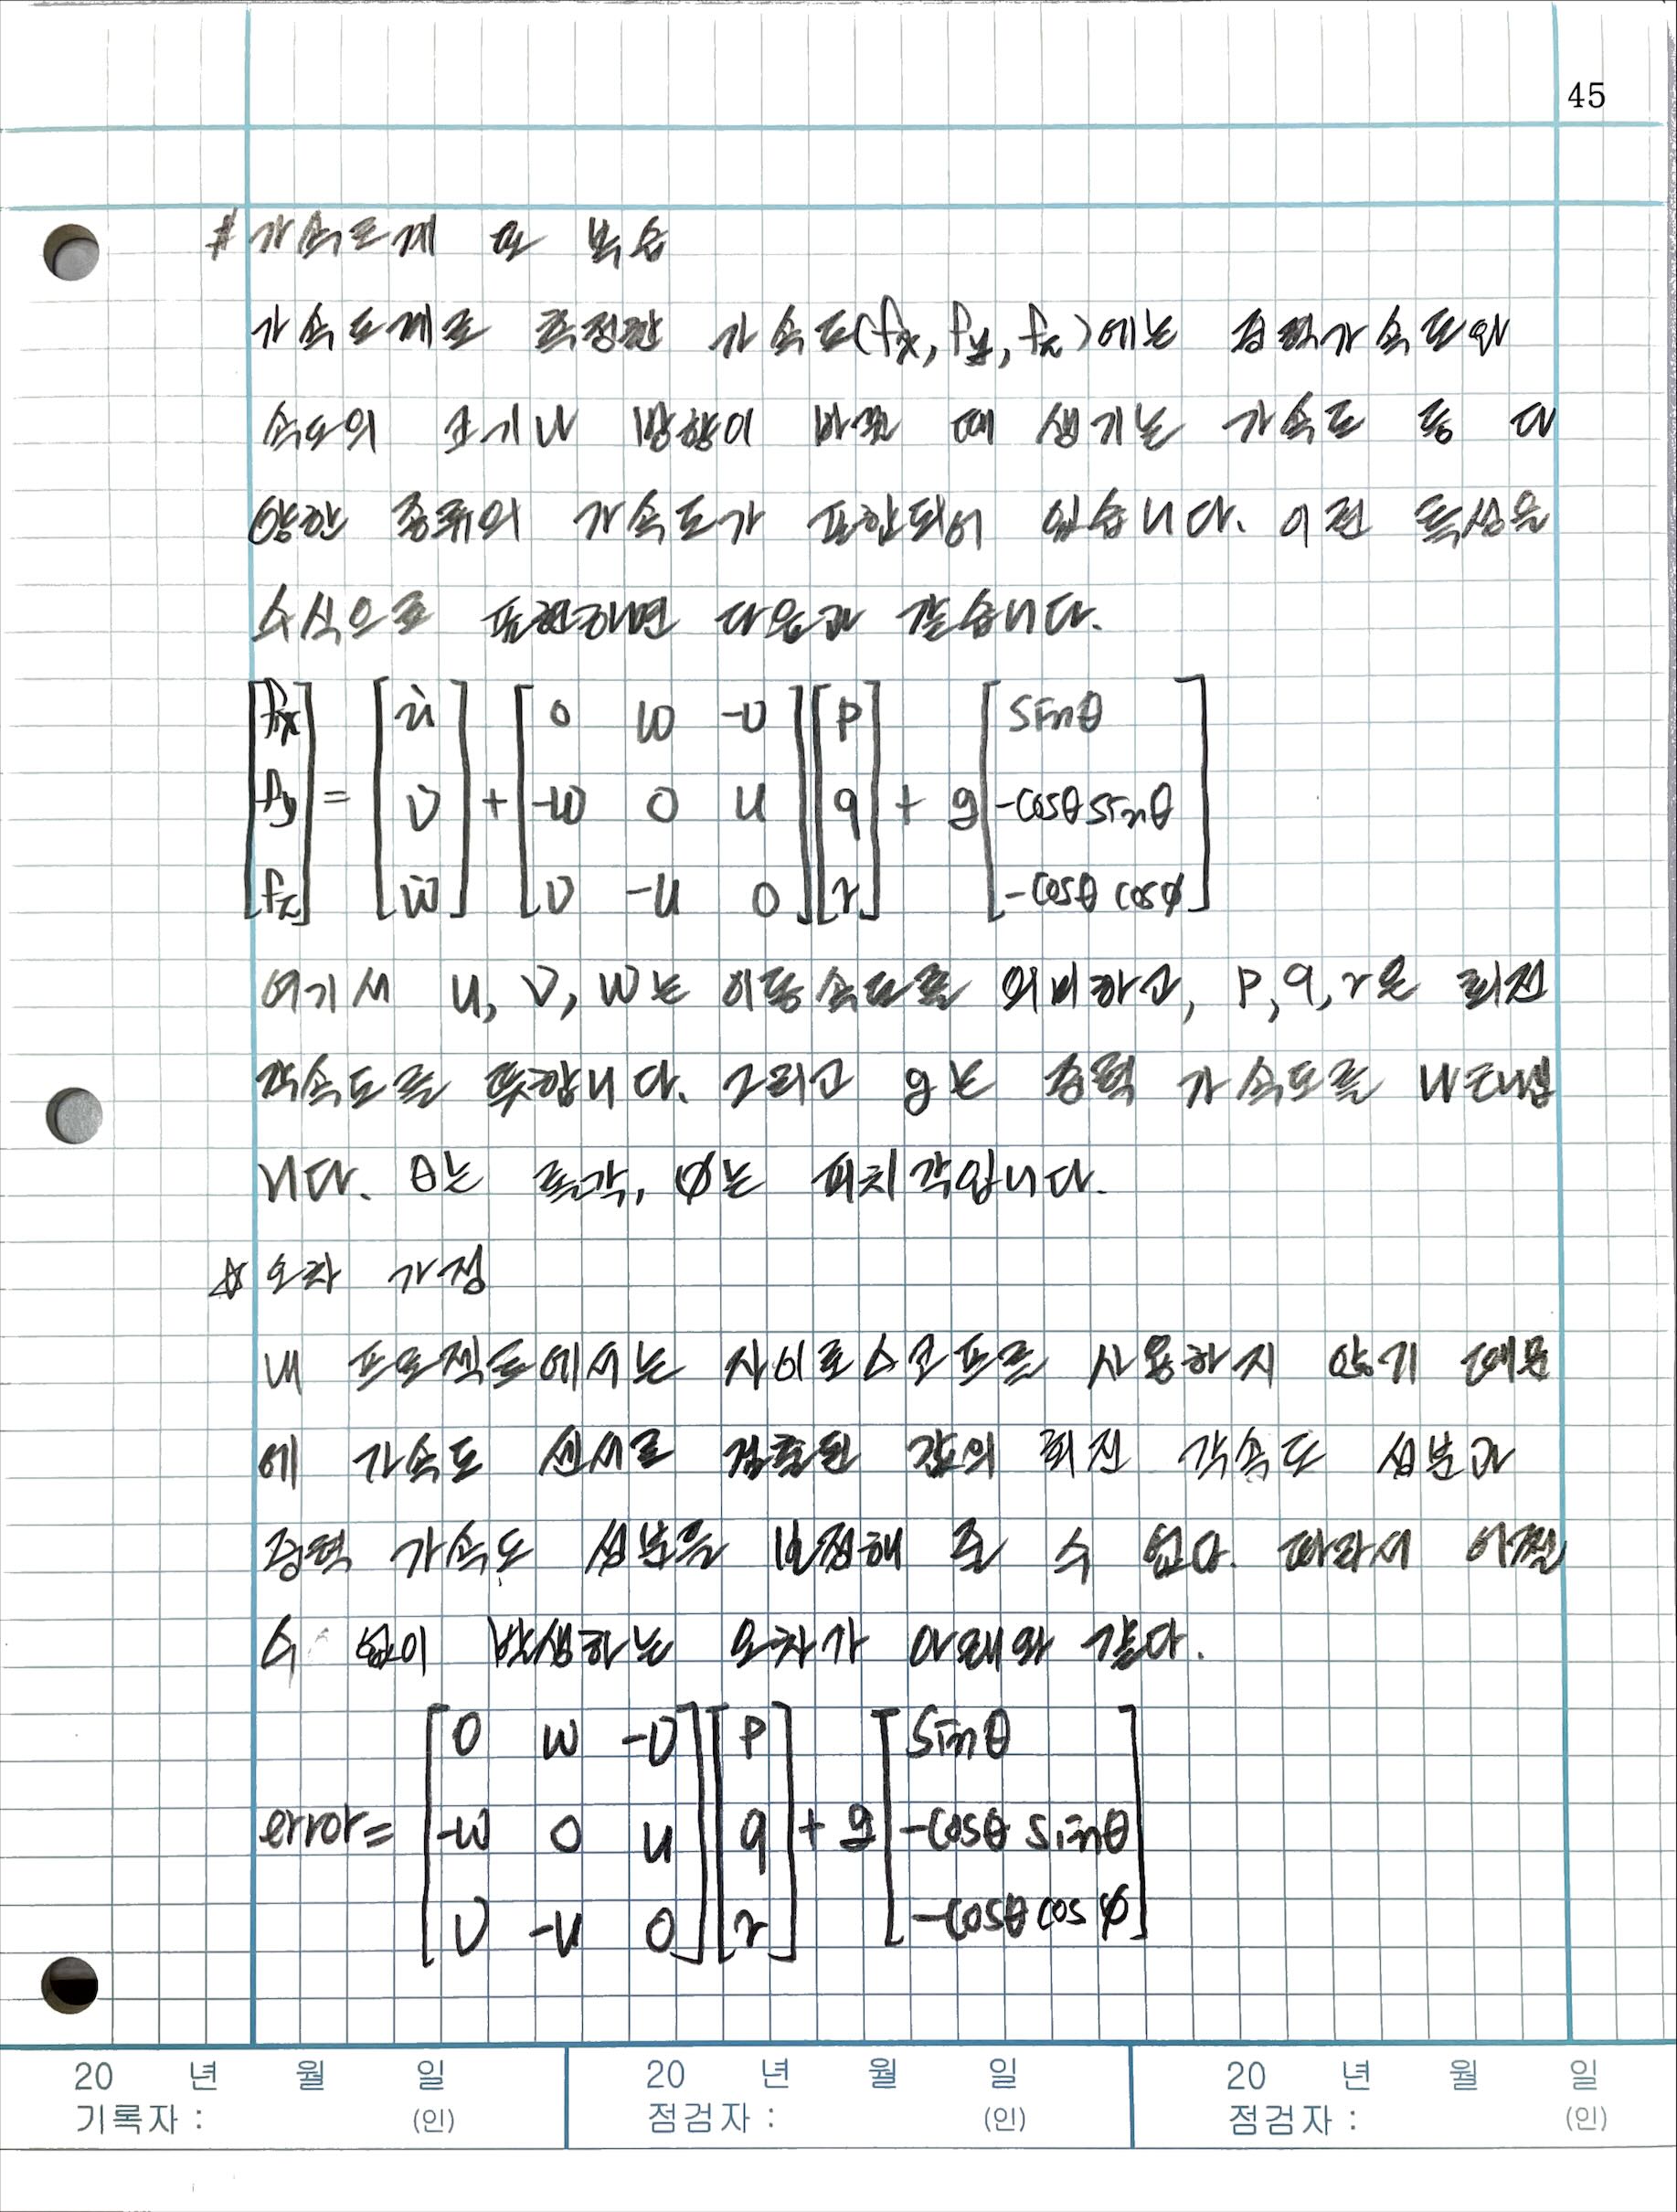 45
# 가속도계 또 복습
가속도계로 측정한 가속도(fx, fy, fz)에는 중력가속도와
속도의 크기나 방향이 바뀔 때 생기는 가속도 등 다
양한 종류의 가속도가 포함되어 있습니다. 이런 특성을
수식으로 표현하면 다음과 같습니다.
[fx fy fz] = [u̇ v̇ ẇ] + [0 w -v; -w 0 u; v -u 0][p q r] + g[sinθ; -cosθ sinθ; -cosθ cosφ]
여기서 u, v, w는 이동속도를 의미하고, p, q, r은 회전
각속도를 뜻합니다. 그리고 g는 중력 가속도를 나타냅
니다. θ는 롤각, φ는 피치각입니다.
☆ 오차 가정
내 프로젝트에서는 자이로스코프를 사용하지 않기 때문
에 가속도 센서로 검출된 값의 회전 각속도 성분과
중력 가속도 성분을 보정해 줄 수 없다. 따라서 어쩔
수 없이 발생하는 오차가 아래와 같다.
error = [0 w -v; -w 0 u; v -u 0][p q r] + g[sinθ; -cosθ sinθ; -cosθ cosφ]
20 년 월 일 20 년 월 일 20 년 월 일
기록자 : (인) 점검자 : (인) 점검자 : (인)